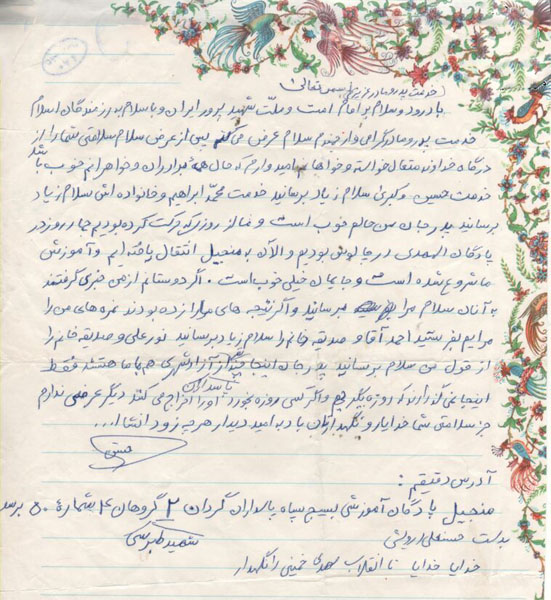 بسمه تعالی
خدمت پدر و مادر عزیزم
با درود و سلام بر امام امت و ملت شهید پرور ایران و با سلام به رزمندگان اسلام
خدمت پدر و مادر گرامی و ارجمندم سلام عرض می کنم پس از عرض سلام سلامتی شما را از
درگاه خداوند متعال خواسته و خواهانم امیدوارم که حال همه برادران و خواهرانم خوب باشد
خدمت حسین و کبری سلام زیاد برسانید خدمت محمد ابراهیم و خانواده اش سلام زیاد
برسانید پدر جان من حالم خوب است و ما از روزی که حرکت کرده بودیم چهار روز در
پادگان المهدی در چالوس بودیم و الآن به منجیل انتقال یافته ایم و آموزش
ما شروع شده است و جایمان خیلی خوب است. اگر دوستانم از من خبری گرفتند
به آنان سلام مرا برسانید و اگر نتیجه های ما را زده بودند نمره های من را
برایم بفرستید احمد آقا و صدیقه خانم را سلام زیاد برسانید نورعلی و صدیقه خانم را
از قول من سلام برسانید پدر جان اینجا هم با ما هستند فقط
اینجا نمی گذارند که روزه بگیریم و اگر کسی روزه بگیرد او را اخراج می کنند دیگر عرضی ندارم
جز سلامتی شما خدایار و نگهدارتان باد به امید دیدار هر چه زودتر انشاا...
آدرس دقیقم:
منجیل پادگان آموزشی بسیج سپاه پاسداران گردان ۲ گروهان ۴ شماره ۸۰ برسد
بدست حسنعلی درویشی
خدایا خدایا تا انقلاب مهدی خمینی را نگهدار